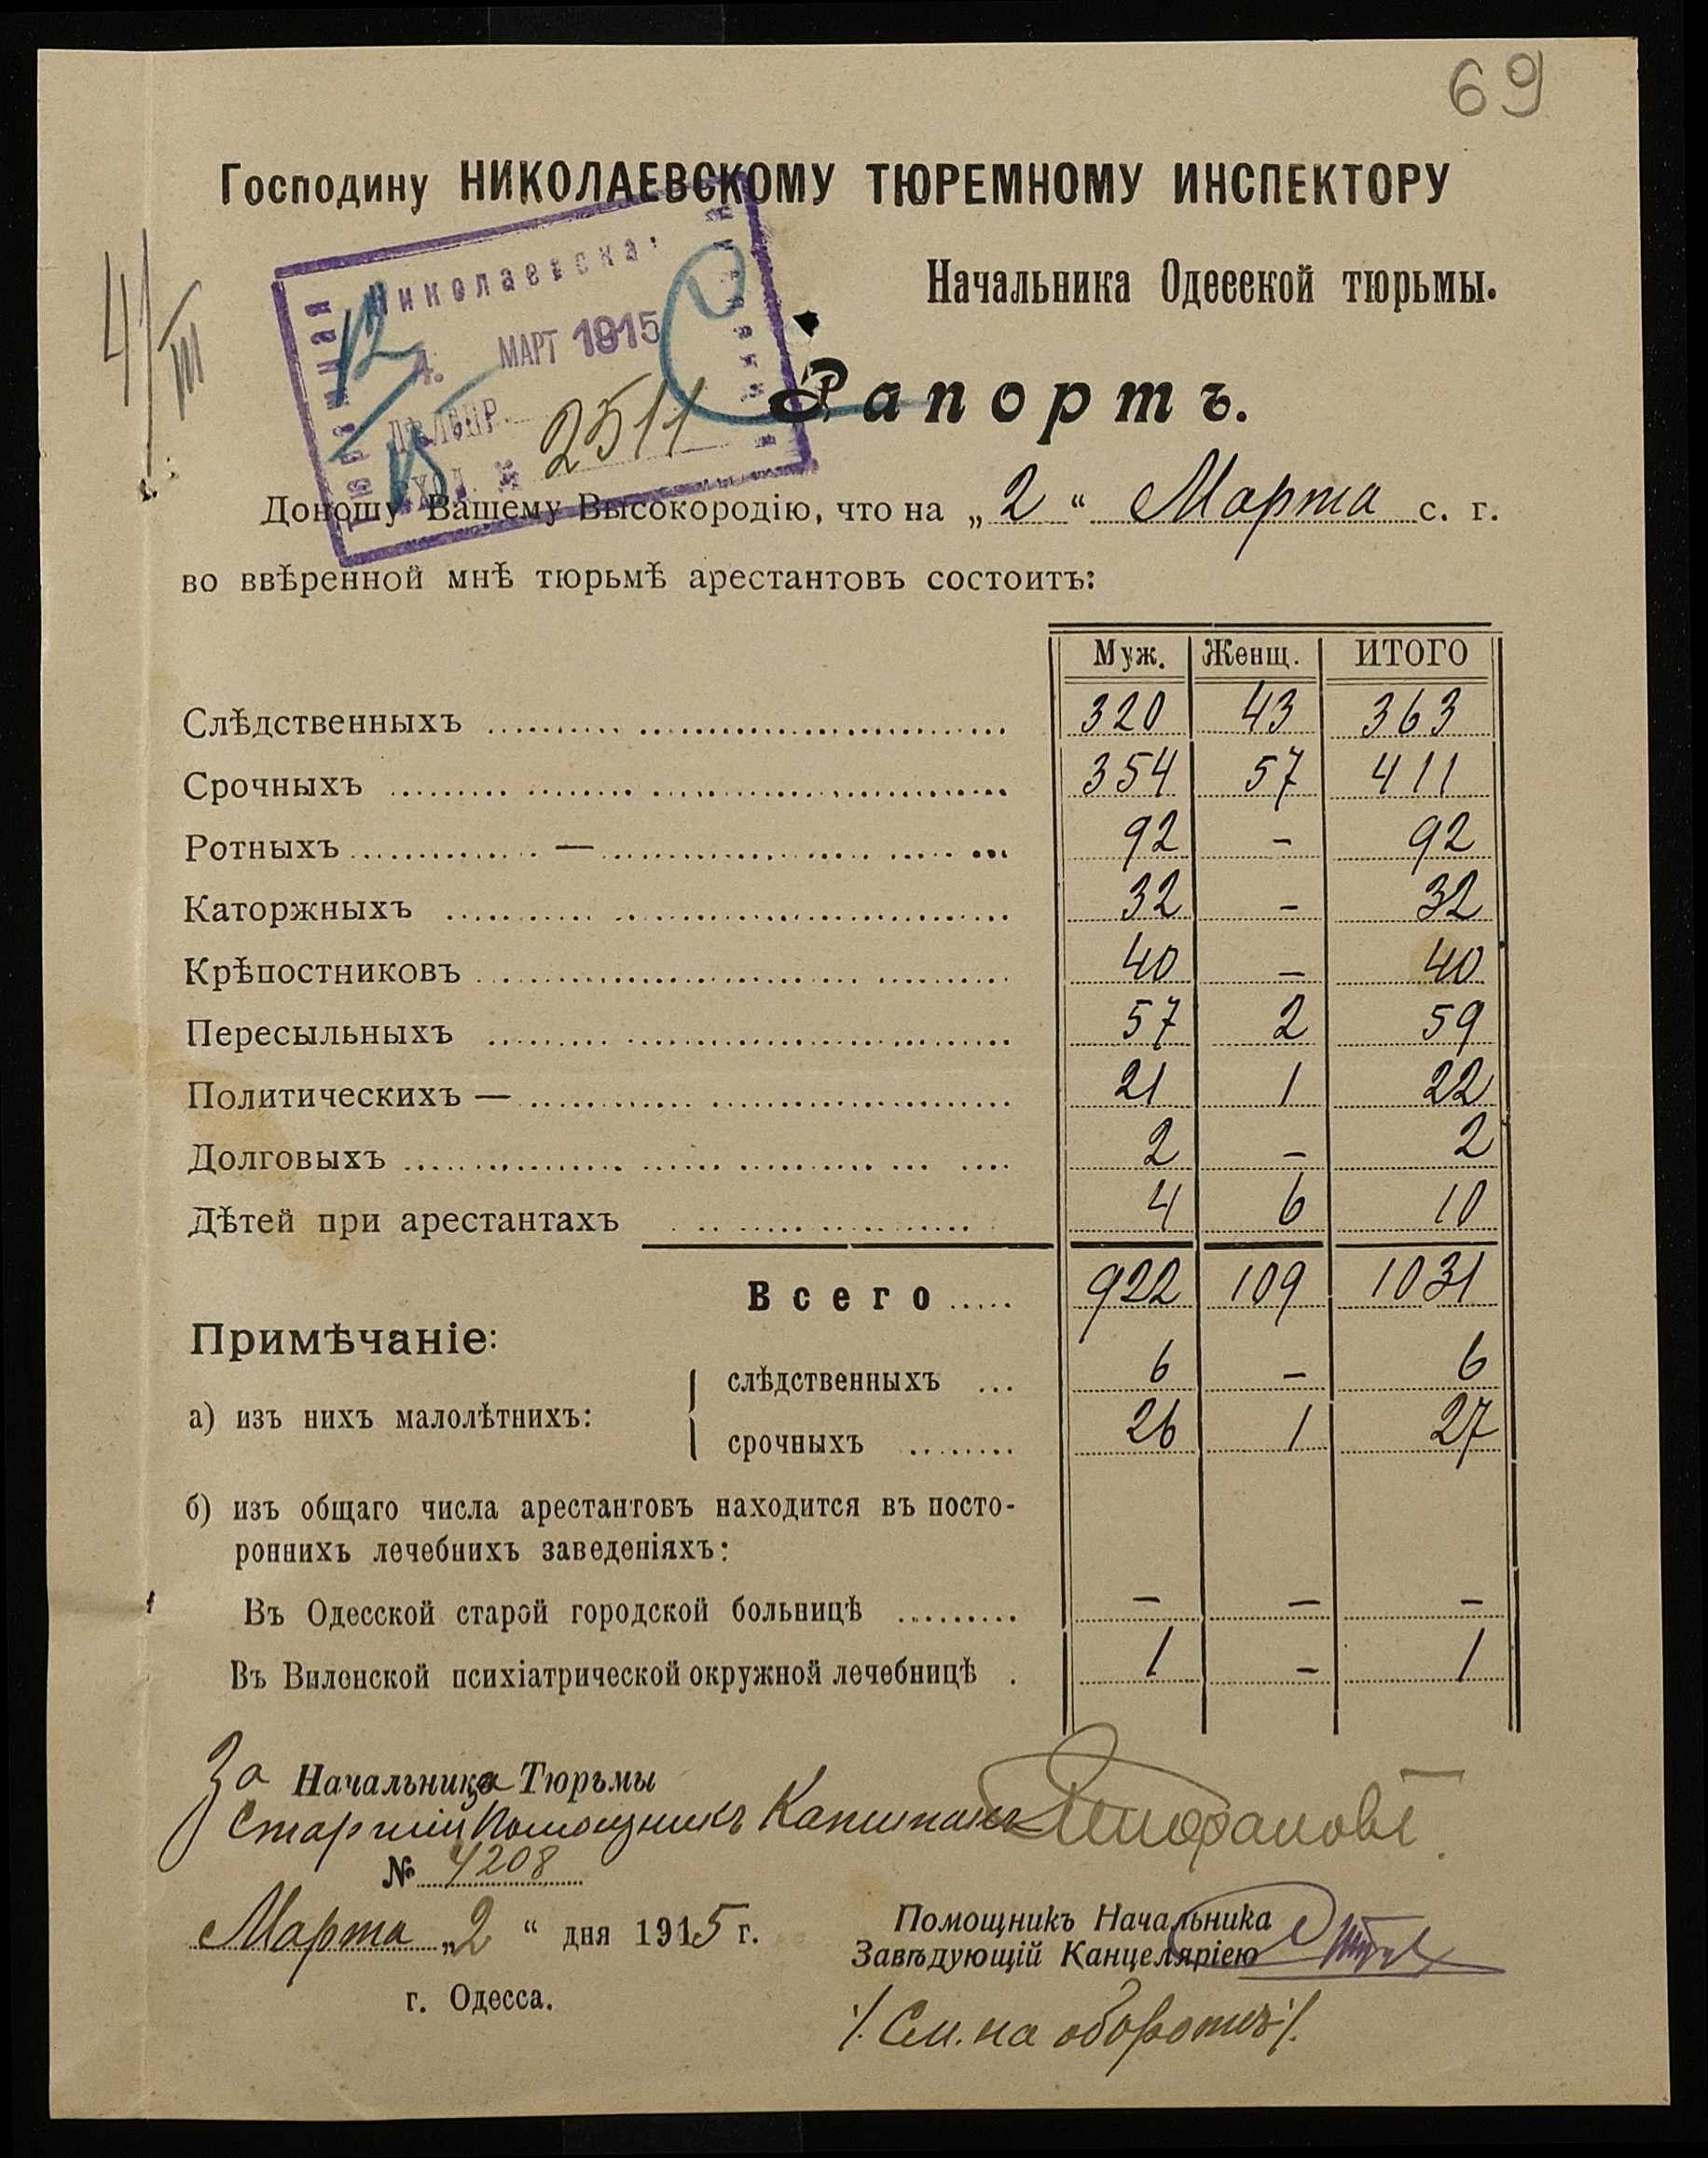 69
Господину НИКОЛАЕВСКОМУ ТЮРЕМНОМУ ИНСПЕКТОРУ
Начальника Одесской тюрьмы.
4/III
Николаевска
4. МАРТ 1915
ДѢЛОПР.
ВХОД. № 2511
Рапортъ.
Доношу Вашему Высокородію, что на „2“ Марта с. г.
во ввѣренной мнѣ тюрьмѣ арестантовъ состоитъ:
Муж. Женщ. ИТОГО
Слѣдственныхъ 320 43 363
Срочныхъ 354 57 411
Ротныхъ — 92 - 92
Каторжныхъ 32 - 32
Крѣпостниковъ 40 - 40
Пересыльныхъ 57 2 59
Политическихъ — 21 1 22
Долговыхъ 2 - 2
Дѣтей при арестантахъ 4 6 10
Всего 922 109 1031
Примѣчаніе:
а) изъ нихъ малолѣтнихъ:
слѣдственныхъ 6 - 6
срочныхъ 26 1 27
б) изъ общаго числа арестантовъ находится въ посто-
роннихъ лечебнихъ заведеніяхъ:
Въ Одесской старой городской больницѣ - - -
Въ Виленской психіатрической окружной лечебницѣ 1 - 1
За Начальника Тюрьмы
Старшій Помощникъ Капитанъ
№ 4208
Марта „2“ дня 1915 г.
г. Одесса.
Помощникъ Начальника
Завѣдующій Канцеляріею
/. См. на оборотѣ ./.